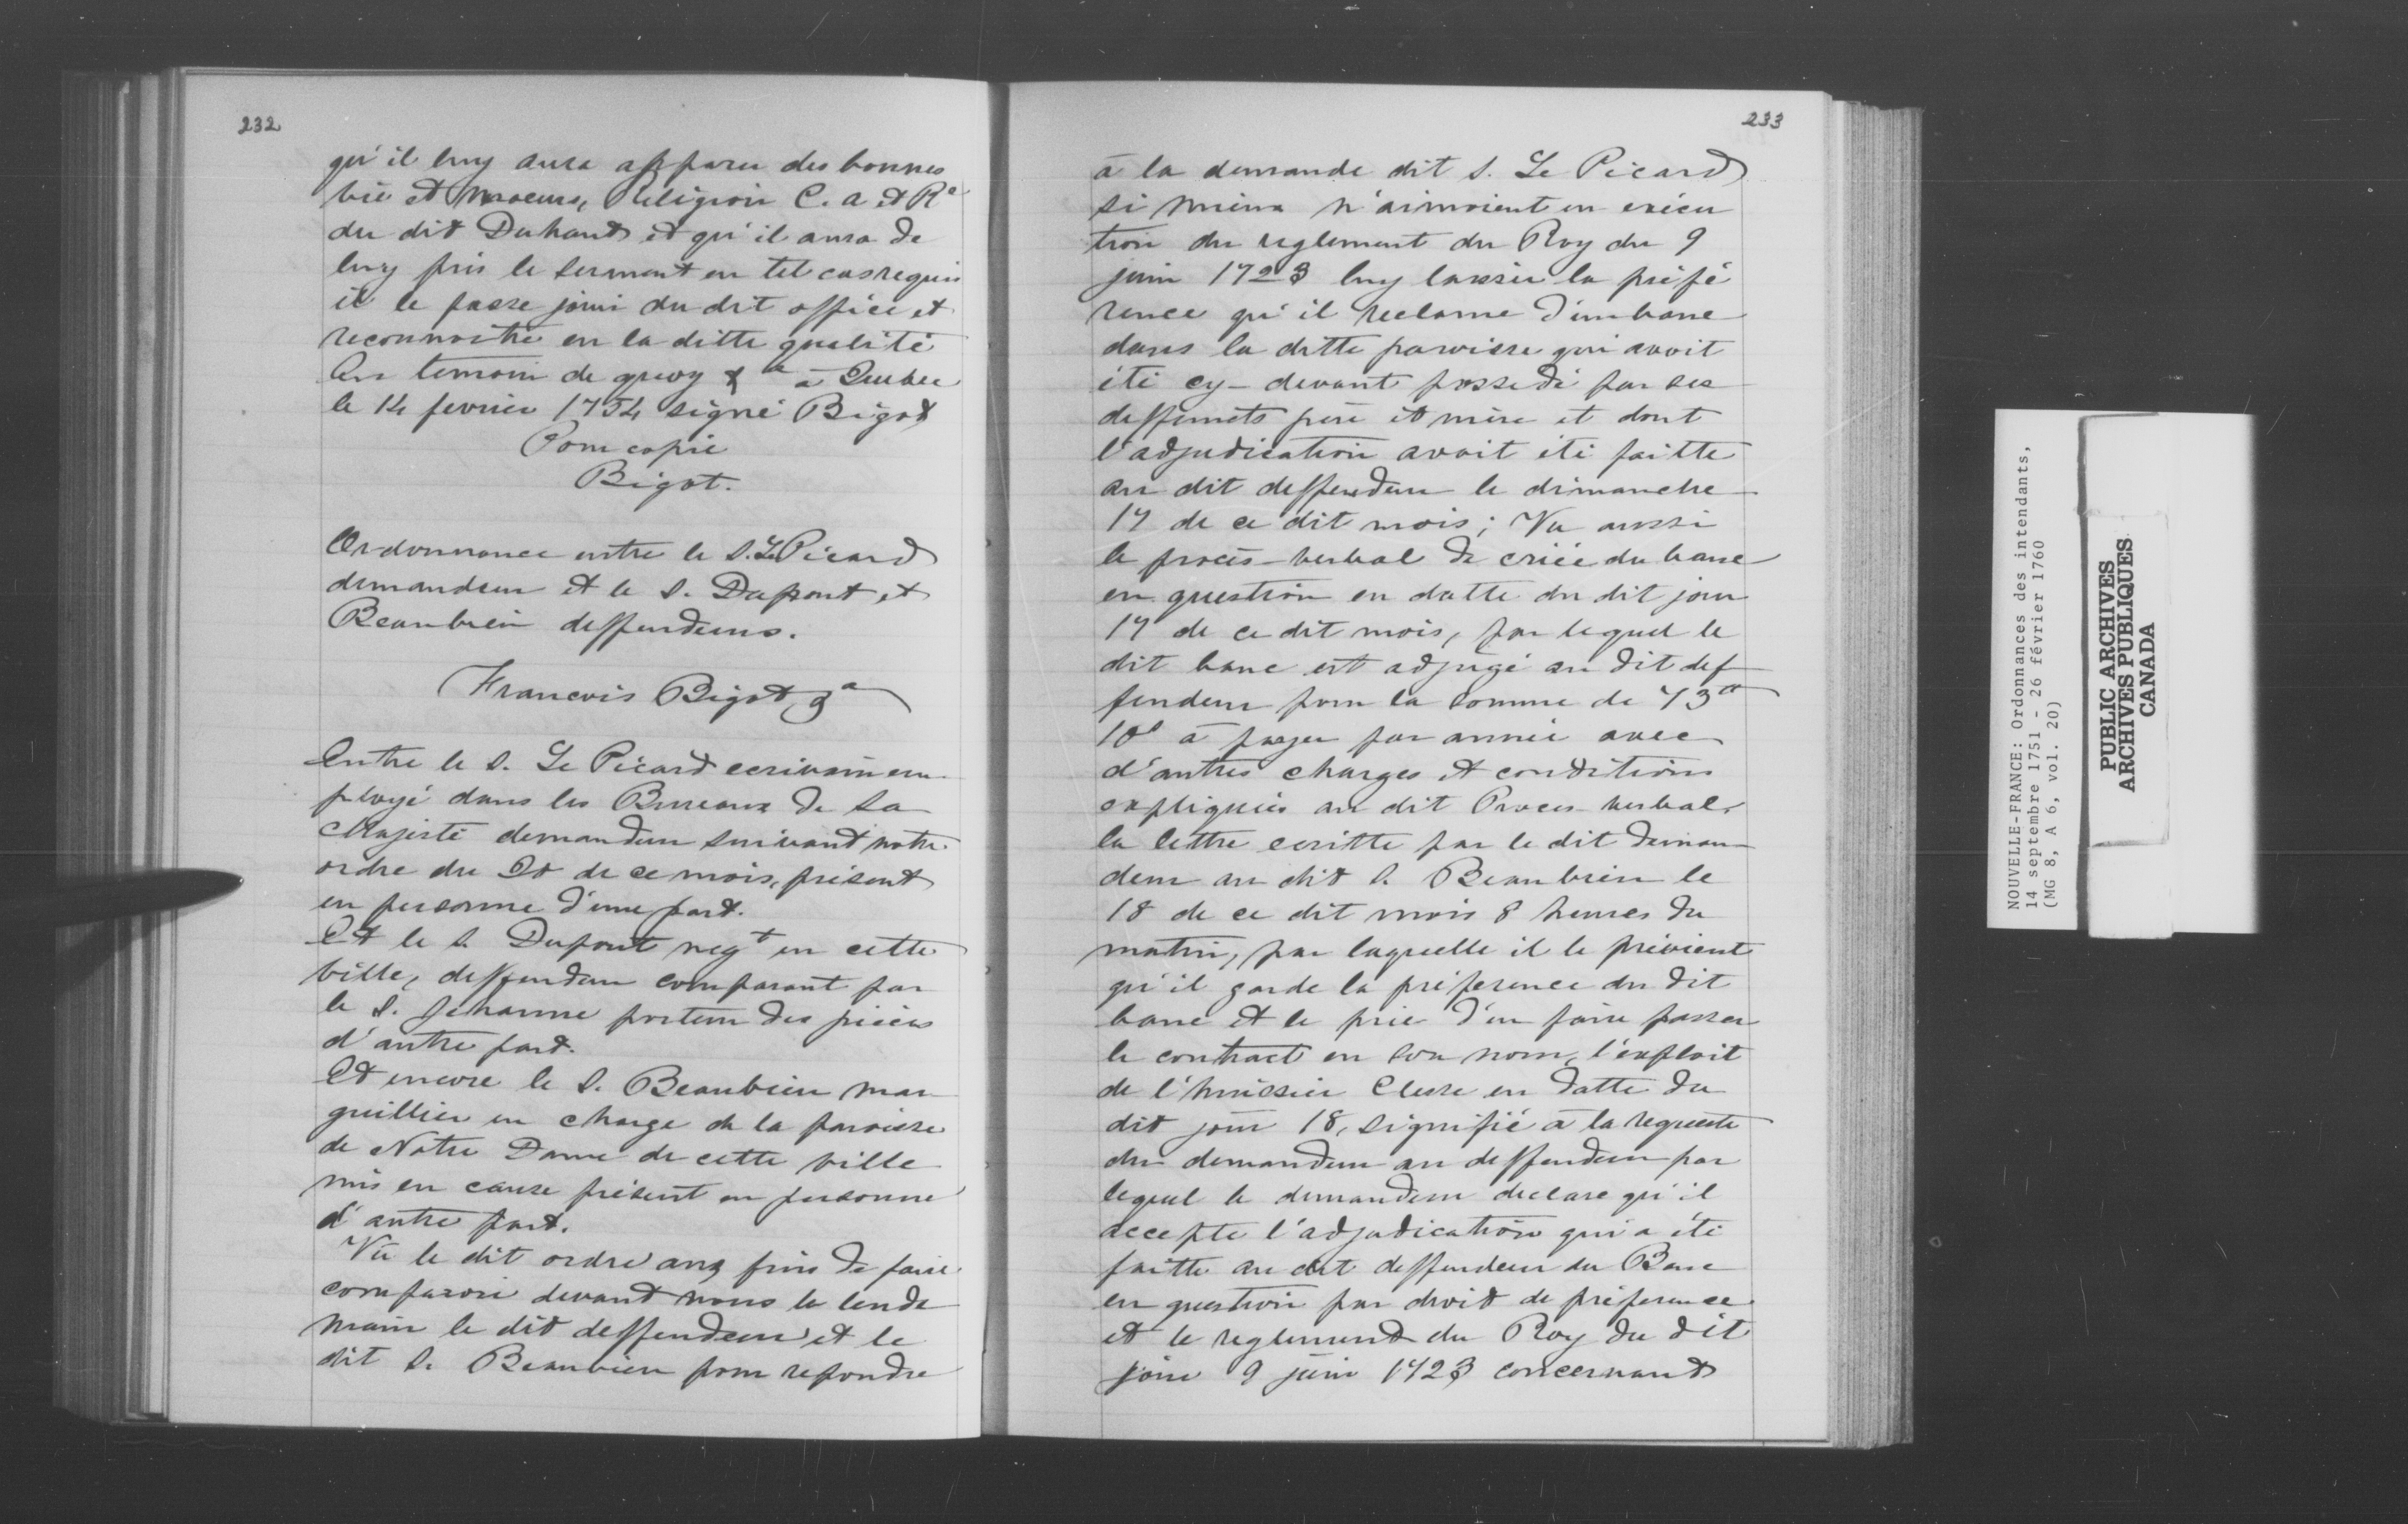 232
qu'il luy aura apparu des bonnes
vie et moeurs, Religion C. A et Re
du dit Duhaut et qu'il aura de
luy pris le serment en tel cas requis
il le fasse jouir du dit office et
reconnoitre en la ditte qualité
En temoin de quoy &a à Quebec
le 14 fevrier 1754 signé Bigot
Pour copie
Bigot.
Ordonnance entre le S. Le Picard
demandeur et le S. Dupont et
Beaubien deffendeurs.
Francois Bigot &a
Entre le S. Le Picard ecrivain em
ployé dans les Bureaux de Sa
Majesté demandeur suivant notre
ordre du 20 de ce mois, présent
en personne d'une part.
Et le S. Dupont negt en cette
ville, deffendeur comparant par
le S. Jehanne porteur des pièces
d'autre part.
Et encore le S. Beaubien mar
guillier en charge de la paroisse
de Notre Dame de cette ville
mis en cause présent en personne
d'autre part.
Vû le dit ordre aux fins de faire
comparoir devant nous le lende
main le dit deffendeur et le
dit S. Beaubien pour repondre
233
à la demande dit S. Le Picard
si mieux n'aimoient en exécu
tion du reglement du Roy du 9
juin 1723 luy laisser la préfé
rence qu'il reclame d'un banc
dans la ditte paroisse qui avoit
été cy-devant possedé par ses
deffunts père et mère et dont
l'adjudication avoit été faitte
au dit deffendeur le dimanche
17 de ce dit mois; Vu aussi
le procès-verbal de criée du banc
en question en datte du dit jour
17 de ce dit mois, par lequel le
dit banc est adjugé au dit def
fendeur pour la somme de 73tt
10s à payer par année avec
d'autres charges et conditions
expliquées au dit Procès verbal,
la lettre ecritte par le dit deman
deur au dit S. Beaubien le
18 de ce dit mois 8 heures du
matin, par laquelle il le prévient
qu'il garde la préference du dit
banc et le prie d'en faire passer
le contract en son nom, l'exploit
de l'huissier Clesse en datte du
dit jour 18, signifié à la requeste
du demandeur au deffendeur par
lequel le demandeur declare qu'il
accepte l'adjudication qui a été
faitte au dit deffendeur du Banc
en question par droit de préference
et le reglement du Roy du dit
jour 9 juin 1723 concernant
NOUVELLE-FRANCE: Ordonnances des intendants,
14 septembre 1751 - 26 février 1760
(MG 8, A 6, vol. 20)
PUBLIC ARCHIVES
ARCHIVES PUBLIQUES
CANADA